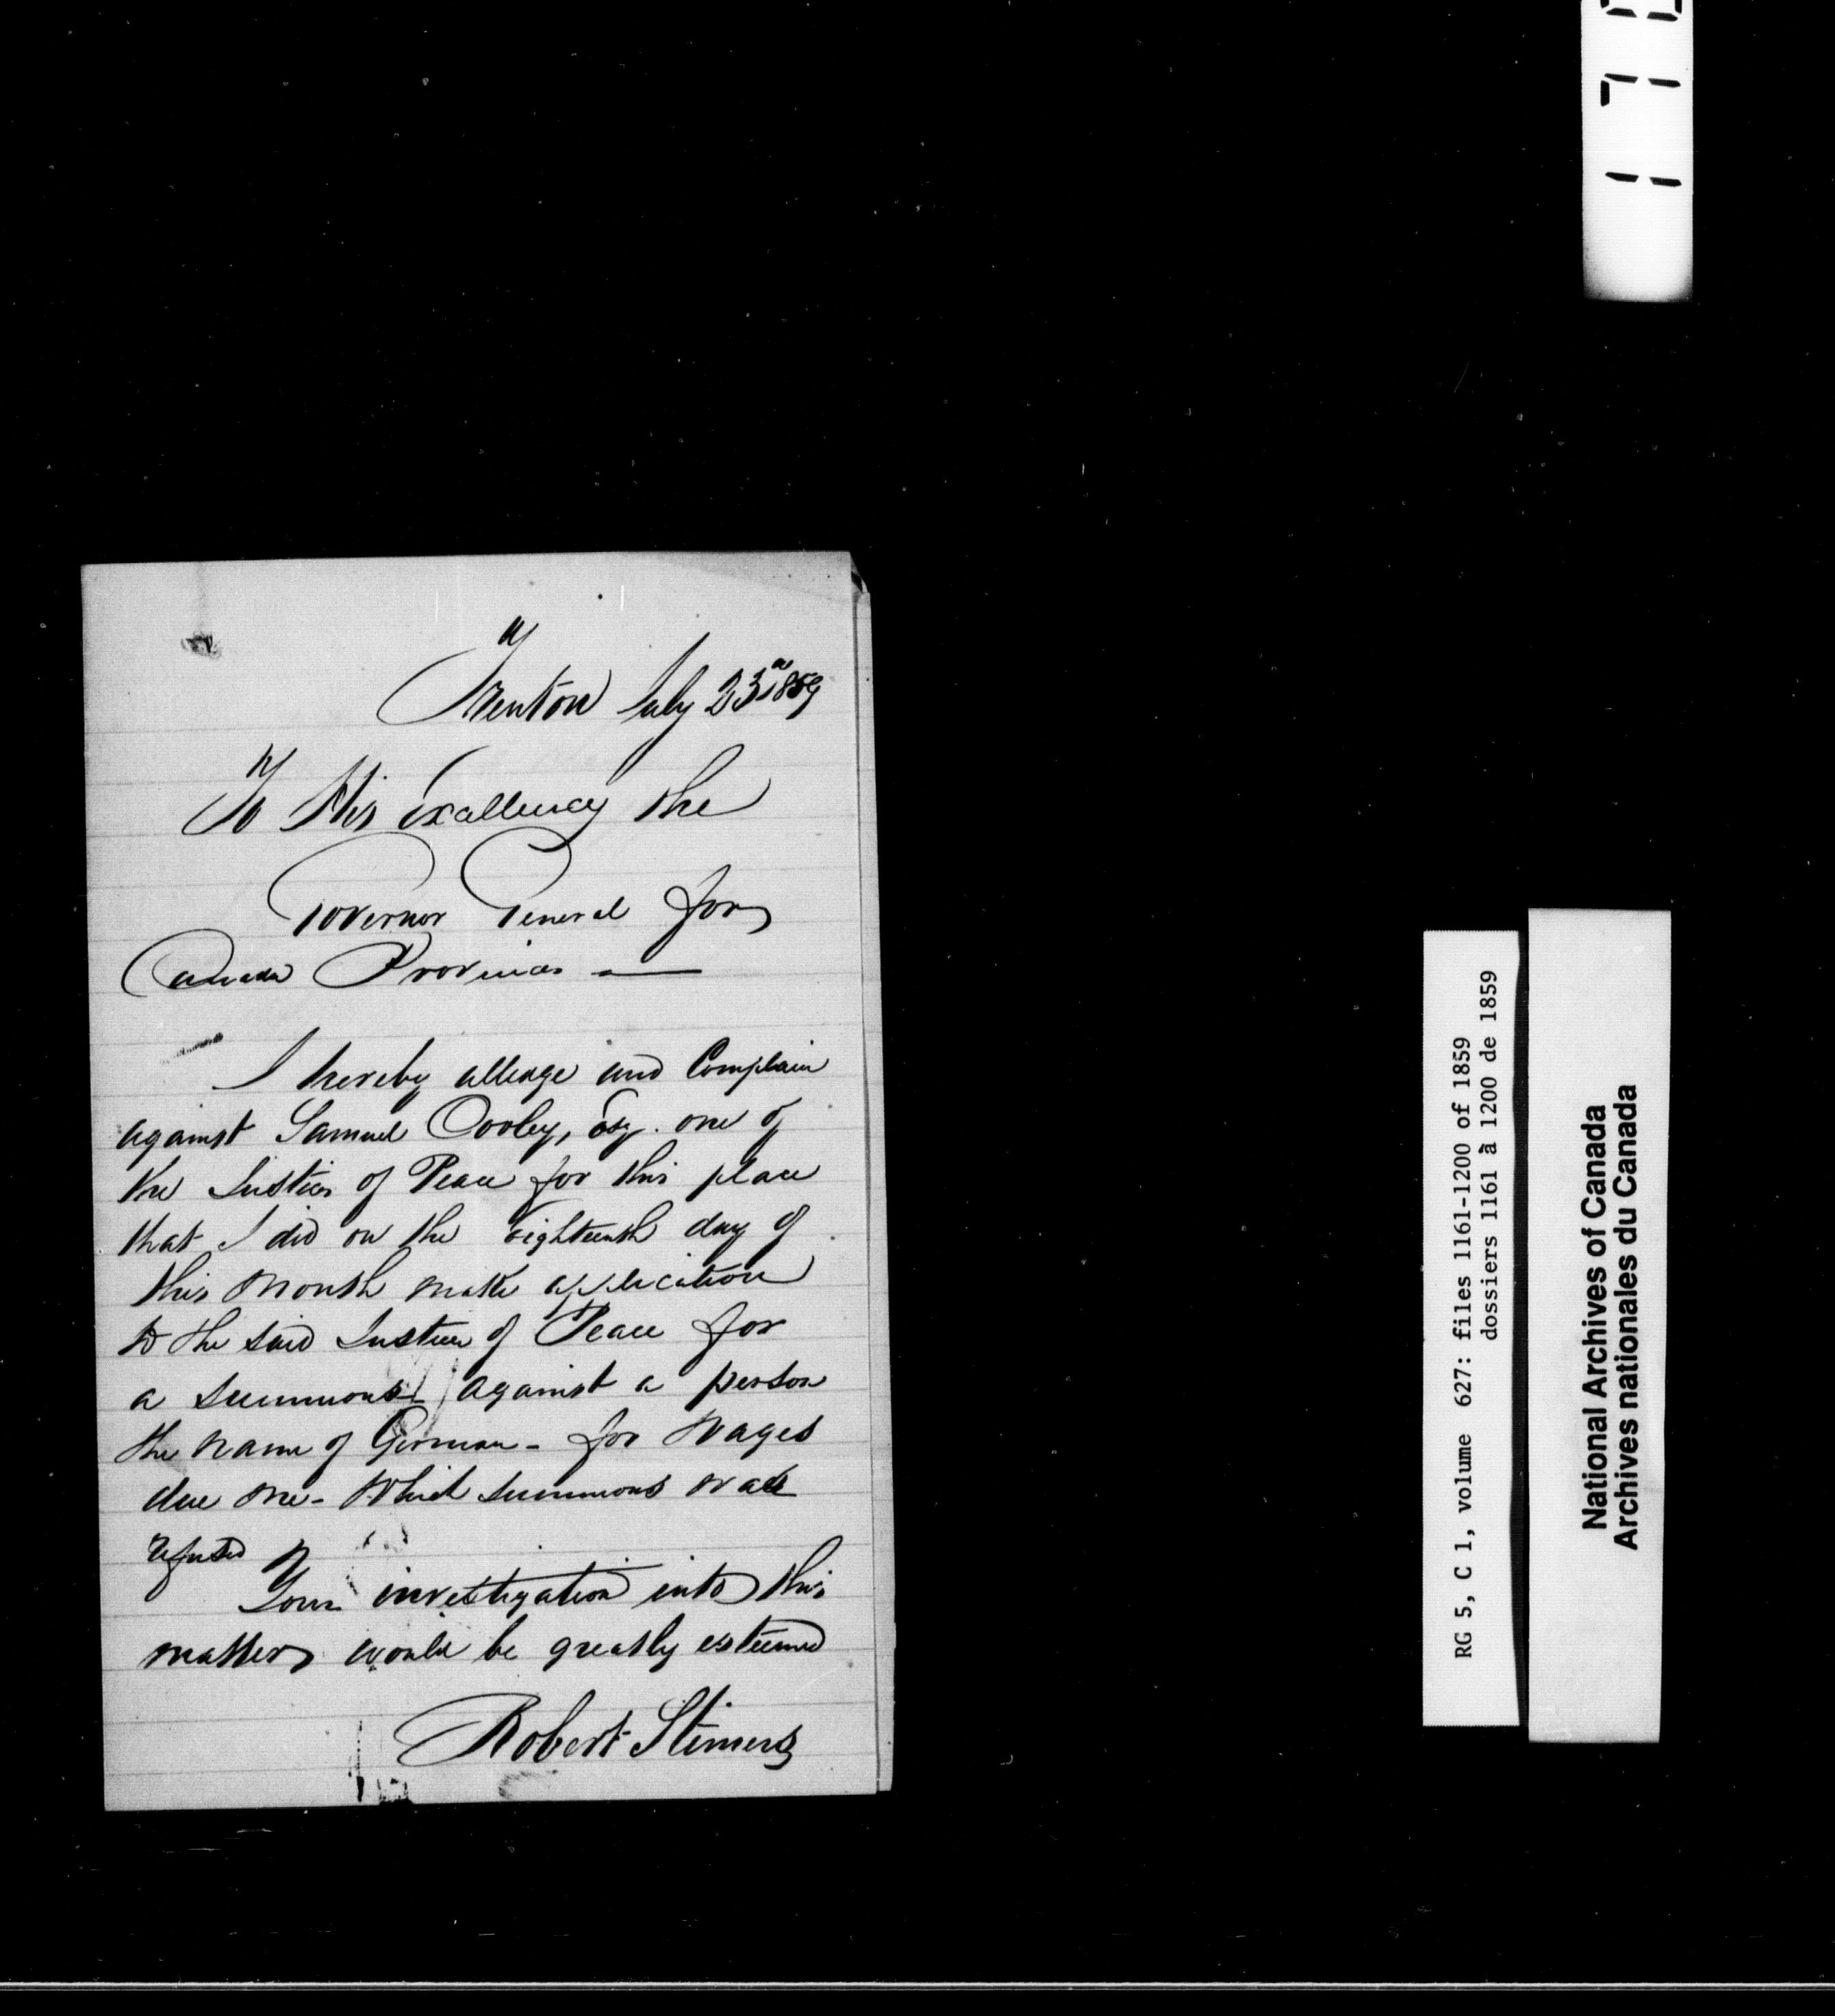 Trenton July 23d 1859
To His Exallency the
Governor General for
Canada Provinces
I hereby alleage and Complain
against Samuel Cooley, Esq. one of
the Justices of Peace for this place
that I did on the Eighteenth day of
this Month make application
to the said Justice of Peace for
a summons against a person
the name of Gorman - for Wages
due me - Which summons was
refused
Your investigation into this
matter would be greatly esteemed
Robert Stimers
RG 5, C 1, volume 627: files 1161-1200 of 1859
dossiers 1161 à 1200 de 1859
National Archives of Canada
Archives nationales du Canada